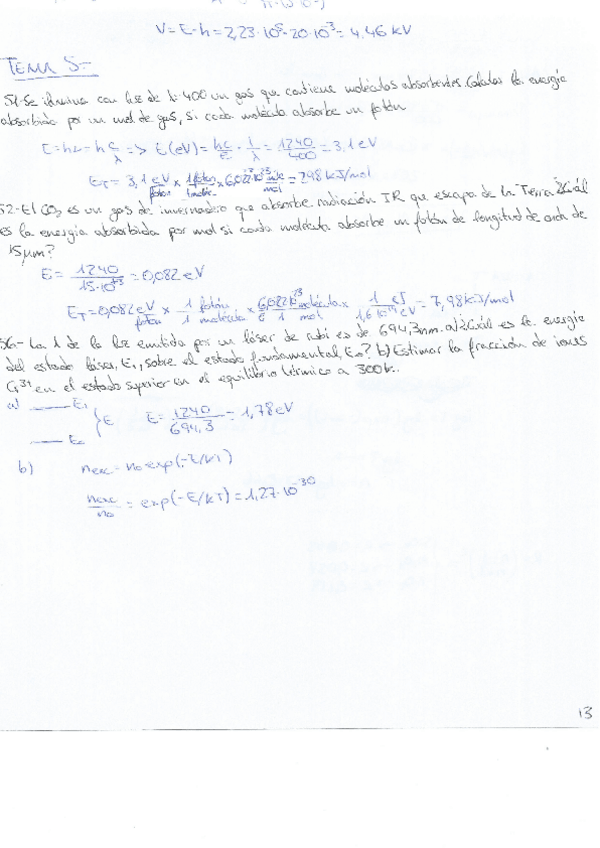 V = E·h = 2,23·10⁵·20·10⁻³ = 4,46 kV
TEMA 5-
51-Se ilumina con luz de λ=400 un gas que contiene moléculas absorbentes. Calcular la energía
absorbida por un mol de gas, si cada molécula absorbe un fotón
E = hν = h c/λ => E(eV) = hc/e · 1/λ = 1240/400 = 3,1 eV
E_T = 3,1 eV/fotón × 1 fotón/molec × 6,022·10²³ molec/mol = 298 kJ/mol
52-El CO₂ es un gas de invernadero que absorbe radiación IR que escapa de la Tierra ¿Cuál
es la energía absorbida por mol si cada molécula absorbe un fotón de longitud de onda de
15 μm?
E = 1240/15·10³ = 0,082 eV
E_T = 0,082 eV/fotón × 1 fotón/1 molécula × 6,022·10²³ molécula/1 mol × 1 = 7,98 kJ/mol
56- La λ de la luz emitida por un láser de rubí es de 694,3nm. a) ¿Cuál es la energía
del estado láser, E₁, sobre el estado fundamental, E₀? b) Estimar la fracción de iones
Cr³⁺ en el estado superior en el equilibrio térmico a 300k.
a) E₁
E E = 1240/694,3 = 1,78 eV
E₀
b) n_exc = n₀ exp(-E/kT)
n_exc/n₀ = exp(-E/kT) = 1,27·10⁻³⁰
13